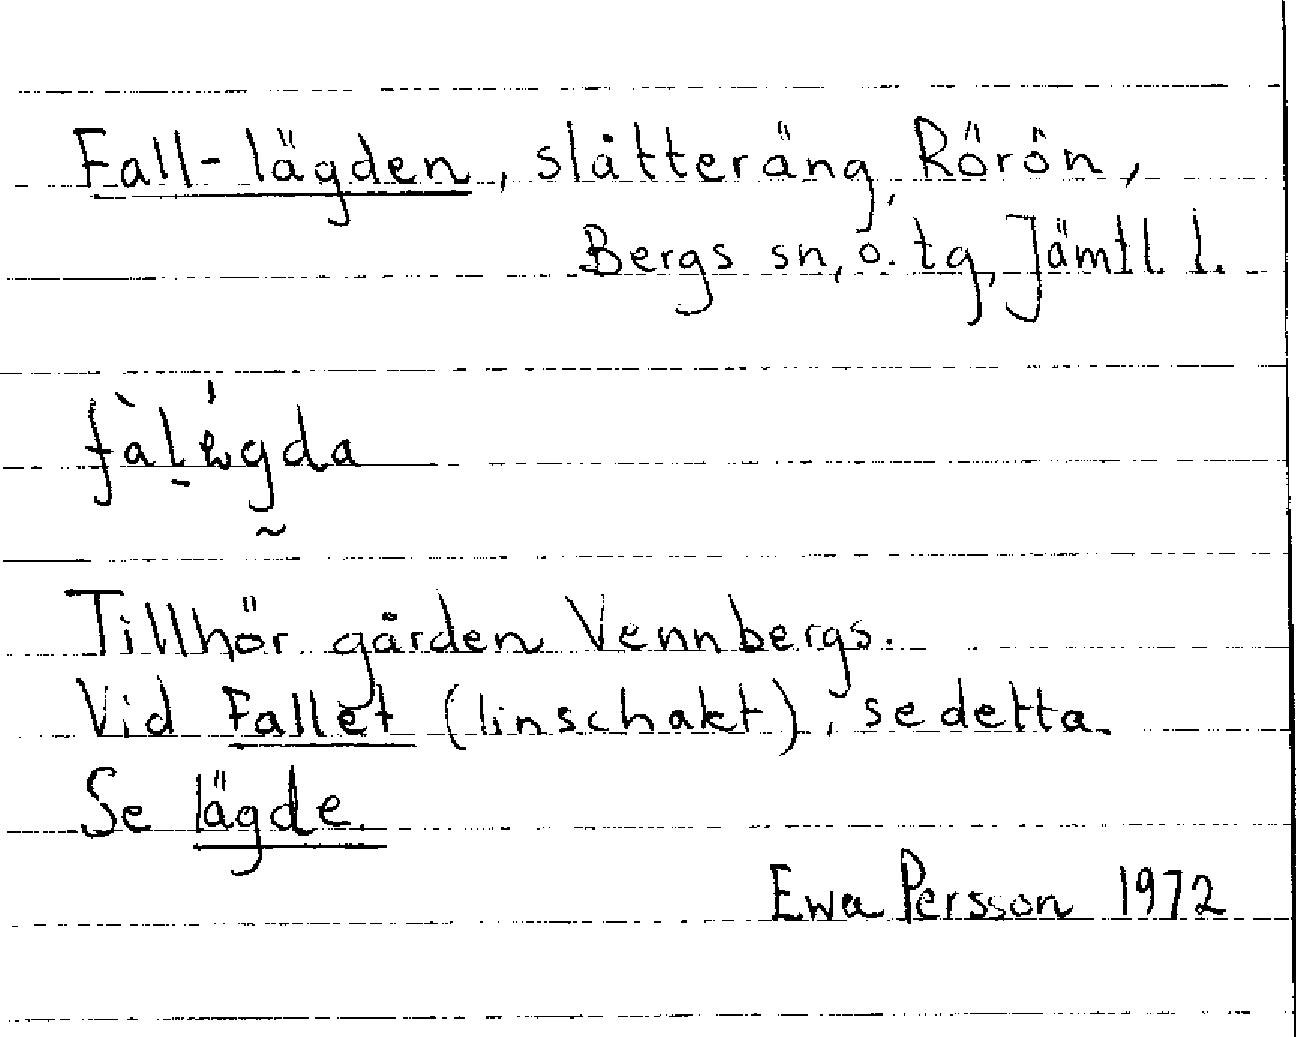 Fall-lägden, slåtteräng, Rörön,
Bergs sn, ö. tg, Jämtl. l.
Tillhör gården Vennbergs.
Vid Fallet (linschakt), se detta.
Se lägde.
Ewa Persson 1972